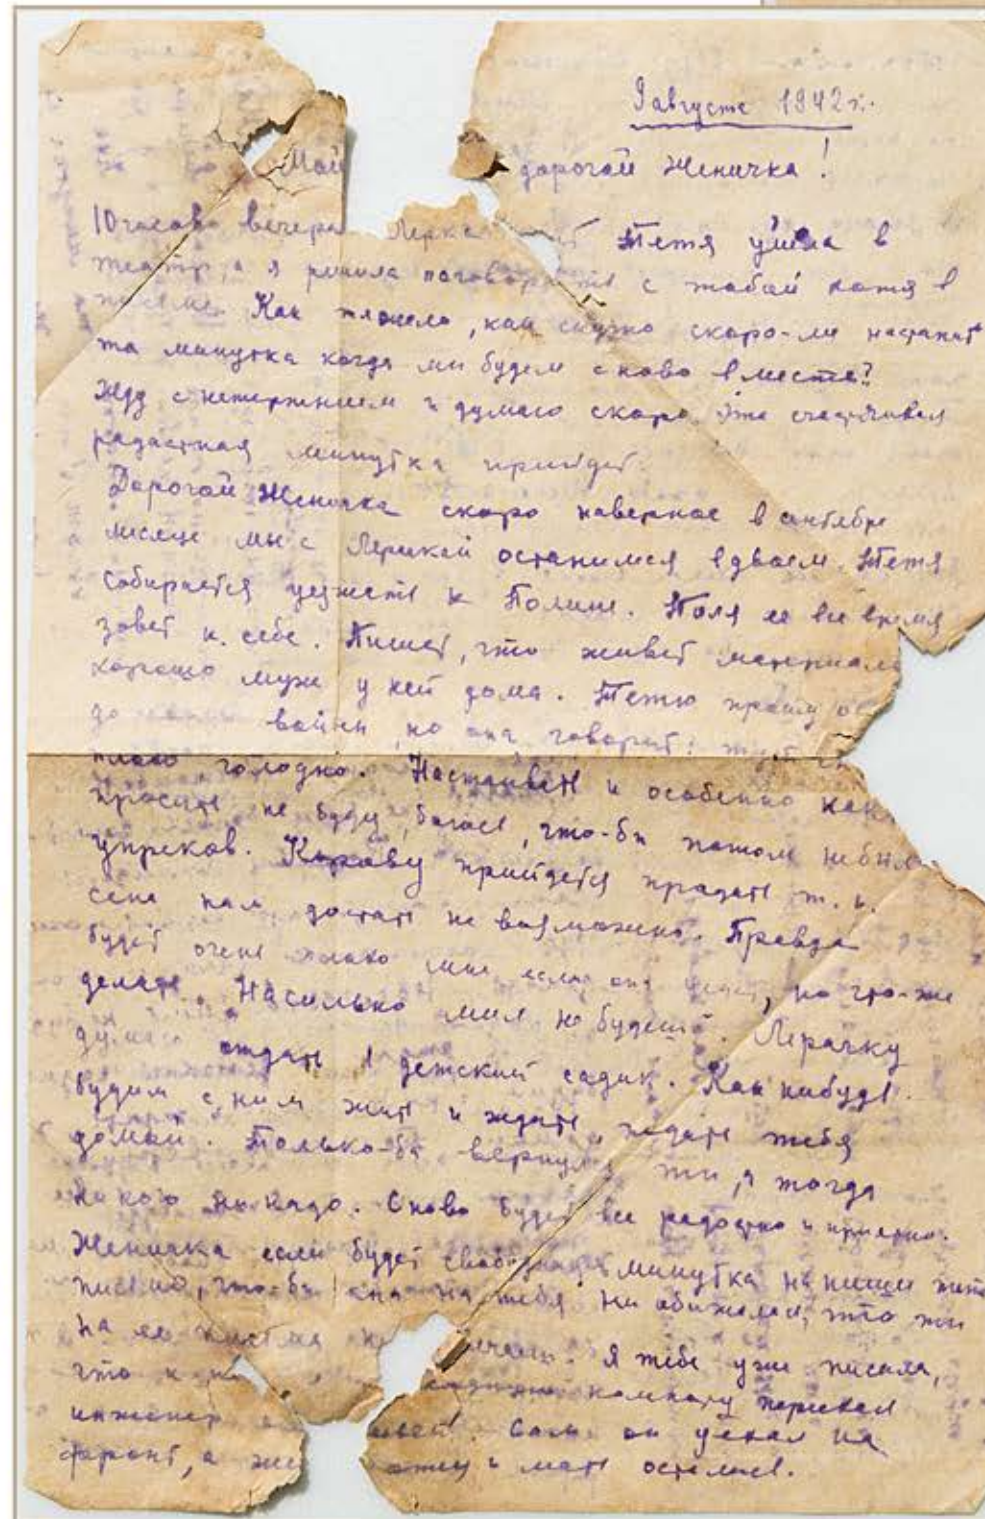 9 августа 1942 г.
Мой дорогой Женичка!
10 часов вечера Лерка Тетя ушла в
театр, а я решила поговорить с тобой хотя в
письме. Как тяжело, как скучно скоро-ли настанет
та минутка когда мы будем сново вместе?
Жду с нетерпением и думаю скоро эта счастливая
радастная минутка прийдет.
Дорогой Женичка скоро наверное в сентебре
месяце мы с Лерикой останимся вдвоем. Тетя
собирается уезжать к Полине. Поля ее все время
зовет к себе. Пишет, что живет материаль
хорошо муж у ней дома. Тетю прошу
до войны, но она говорит: тут
плохо голодно. Настаивать и особенно
просить не буду, боюсь, что-бы потом небыло
упреков. Карову прийдется продать т. к.
сена нам достать не возможно. Правда
будет очень плохо мне если она уедет, но что-же
делать. Насильно мил не будешь. Лерачку
думаю отдать в детский садик. Как нибудь
будим с ним жить и ждать, ждать тебя
домой. Только-бы вернулся ты, а тогда
никого ни надо. Сново будет все радостно и приятно.
Женичка если будет свободная минутка напиши
письмо, что-бы она на тебя ни обижалась, что ты
на ее письма Я тебе уже писала,
что к комнату переехал
инженер Сам он уехал на
фронт, а и мать остались.